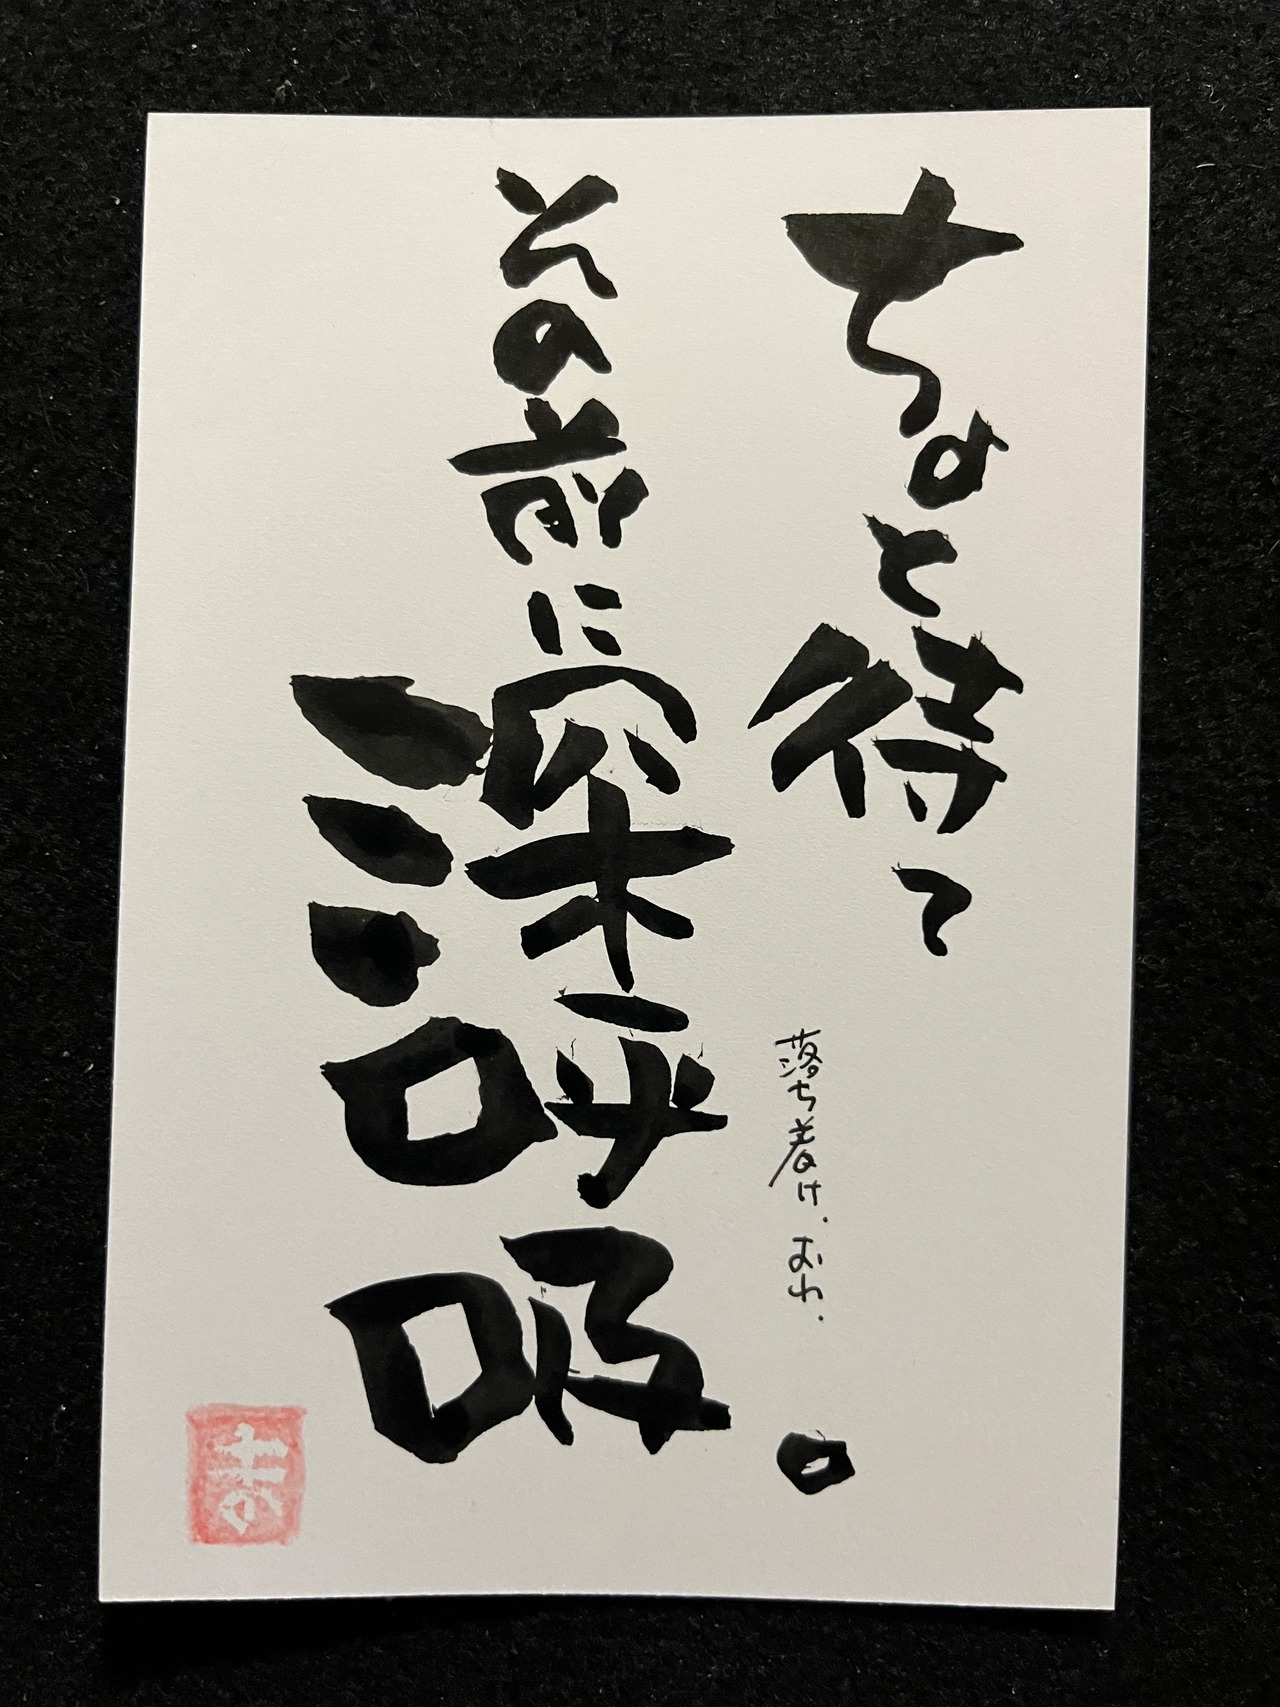 ちょと待て
落ち着け.おれ.
その前に深呼吸。